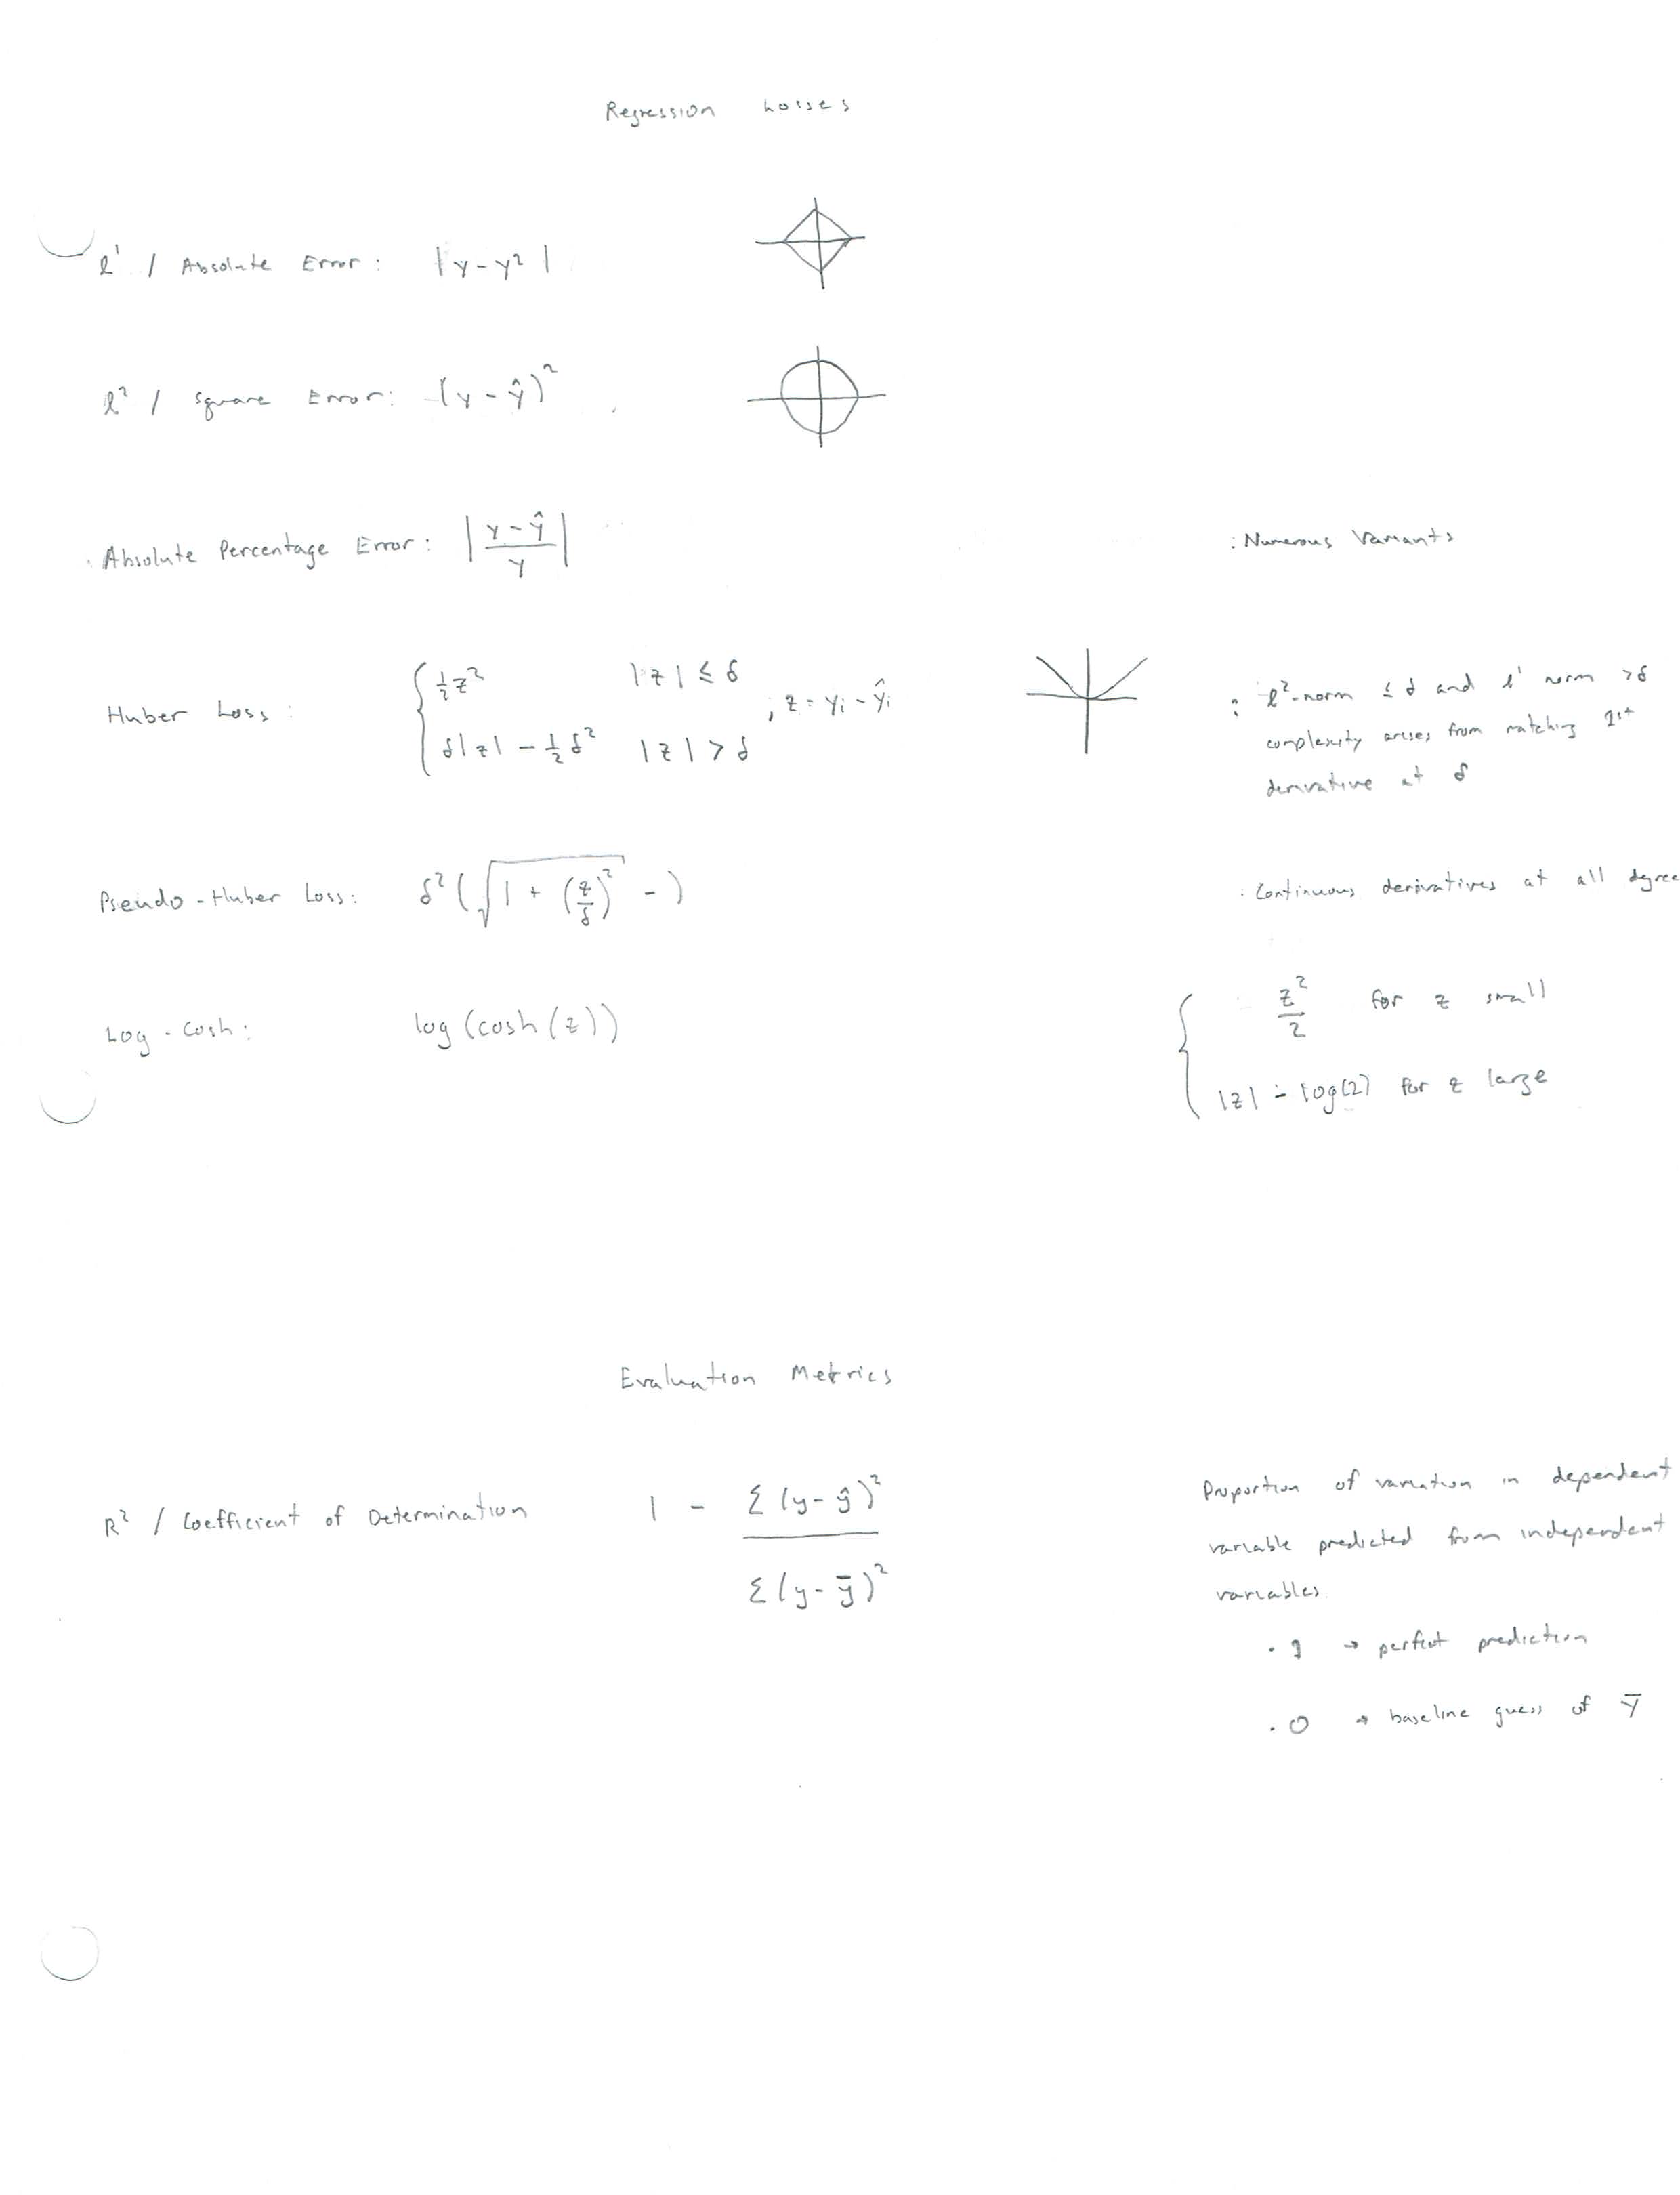 Regression Losses
ℓ¹ / Absolute Error: |y - y²|
ℓ² / Square Error: (y - ŷ)²
Absolute Percentage Error: |(y - ŷ)/y| : Numerous Variants
Huber Loss: { ½z² |z| ≤ δ
δ|z| - ½δ² |z| > δ , z = yᵢ - ŷᵢ
: ℓ²-norm ≤ δ and ℓ¹ norm > δ
complexity arises from matching 1st
derivative at δ
Pseudo-Huber Loss: δ²(√(1 + (z/δ)²) - ) : Continuous derivatives at all degree
Log-Cosh: log(cosh(z)) { z²/2 for z small
|z| - log(2) for z large
Evaluation Metrics
R² / Coefficient of Determination 1 - Σ(y-ŷ)² / Σ(y-ȳ)²
Proportion of variation in dependent
variable predicted from independent
variables.
· 1 → perfect prediction
· 0 → baseline guess of ȳ